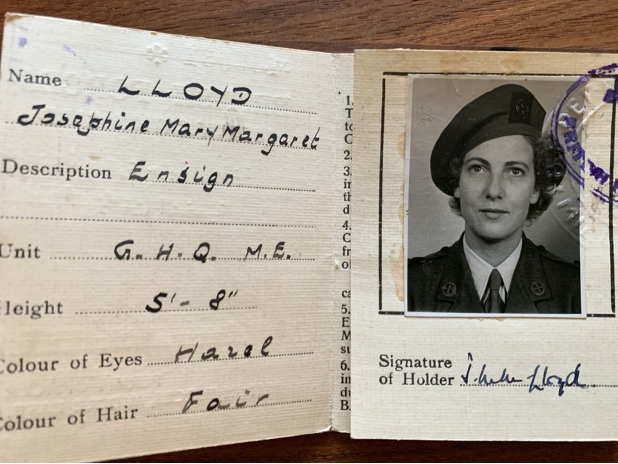 Name LLOYD
Josephine Mary Margaret
Description Ensign
Unit G.H.Q. M.E.
Height 5'-8"
Colour of Eyes Hazel
Colour of Hair Fair
1.
T
to
C
2.
3.
in
th
d
4.
C
fr
o
ca
5.
E
M
su
6.
in
du
B.
Signature
of Holder Lloyd